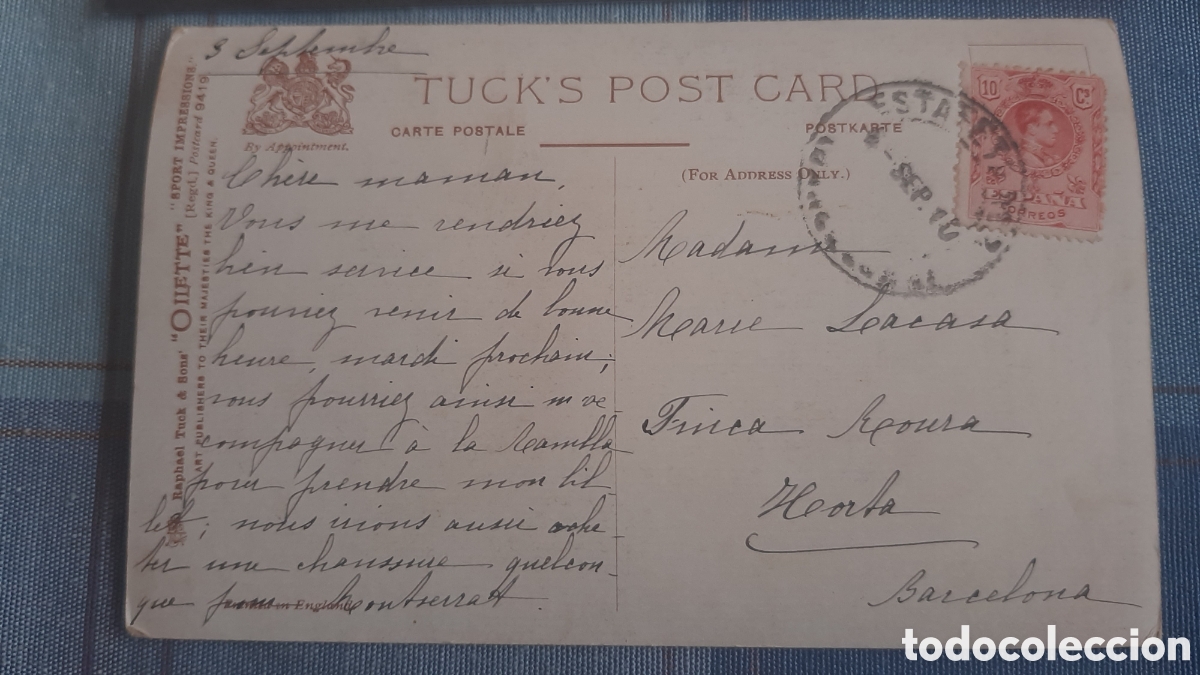 3 Septembre
TUCK'S POST CARD
CARTE POSTALE
POSTKARTE
By Appointment.
(FOR ADDRESS ONLY.)
Raphael Tuck & Sons' "OILETTE" "SPORT IMPRESSIONS."
[Regd.] Postcard 9419
ART PUBLISHERS TO THEIR MAJESTIES THE KING & QUEEN.
Chère maman,
Vous me rendriez
bien service si vous
pourriez venir de bonne
heure, mardi prochain;
vous pourriez ainsi m'ac-
compagner à la Rambla
pour prendre mon bil-
let; nous irions aussi ache-
ter une chaussure quelcon-
que pour Montserrat.
Printed in England
Madame
Marie Lacasa
Finca Roura
Horta
Barcelona
10 Cs
ESPAÑA
CORREOS
SEP. 10
todocoleccion